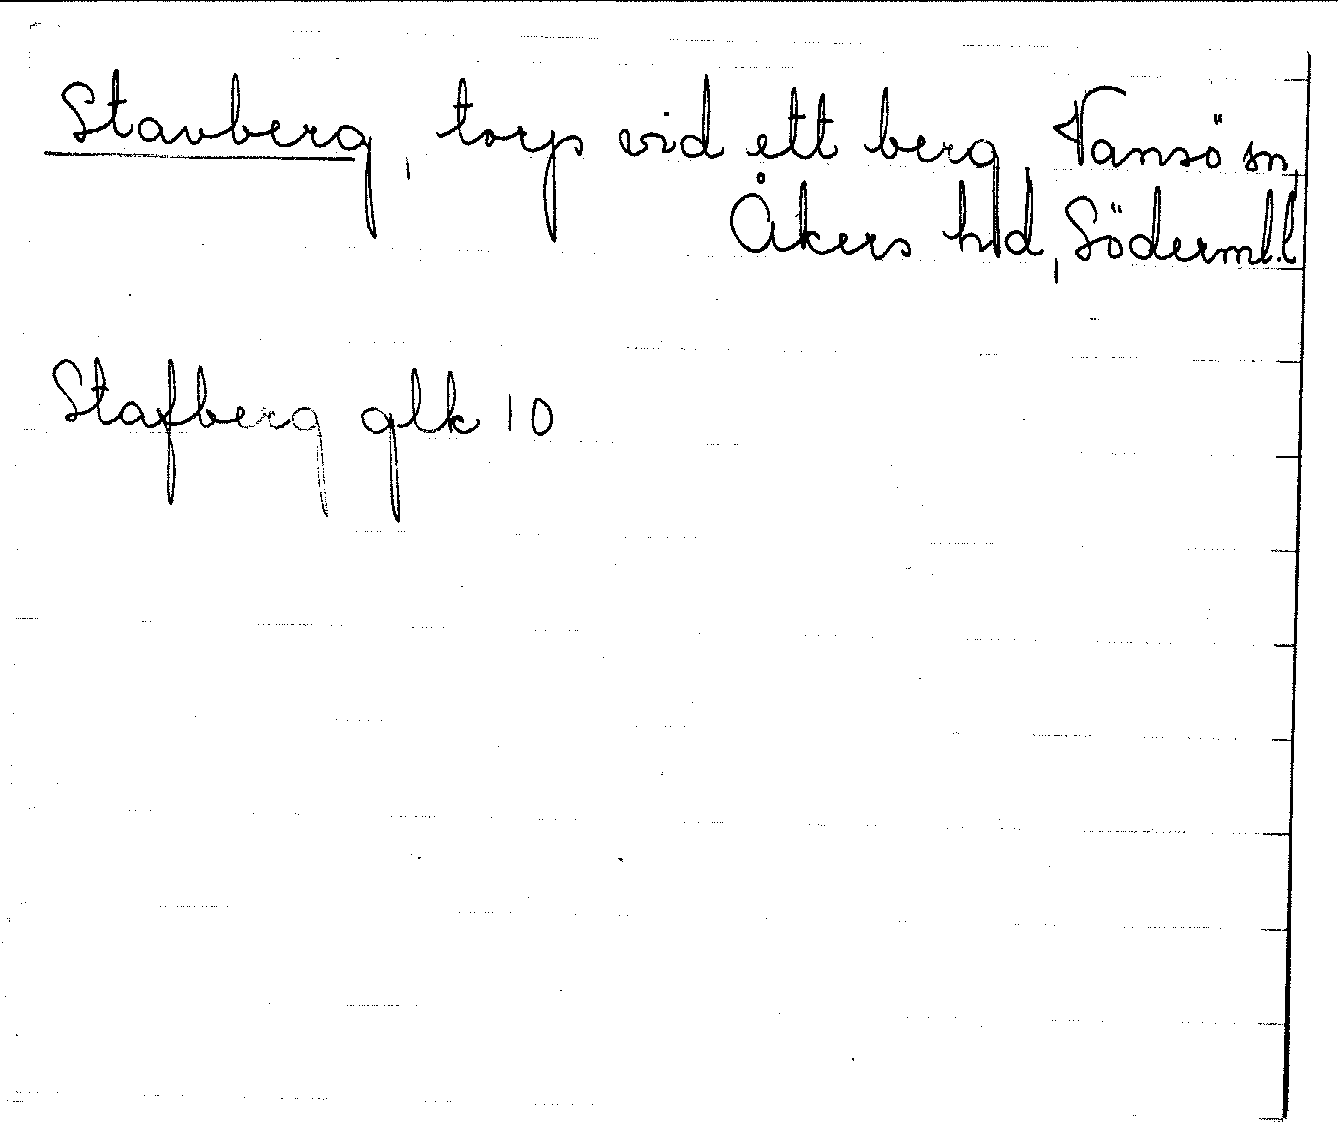 Stavberg, torp vid ett berg, Vansö sn,
Åkers hd, Söderml.l
Stafberg glk 10